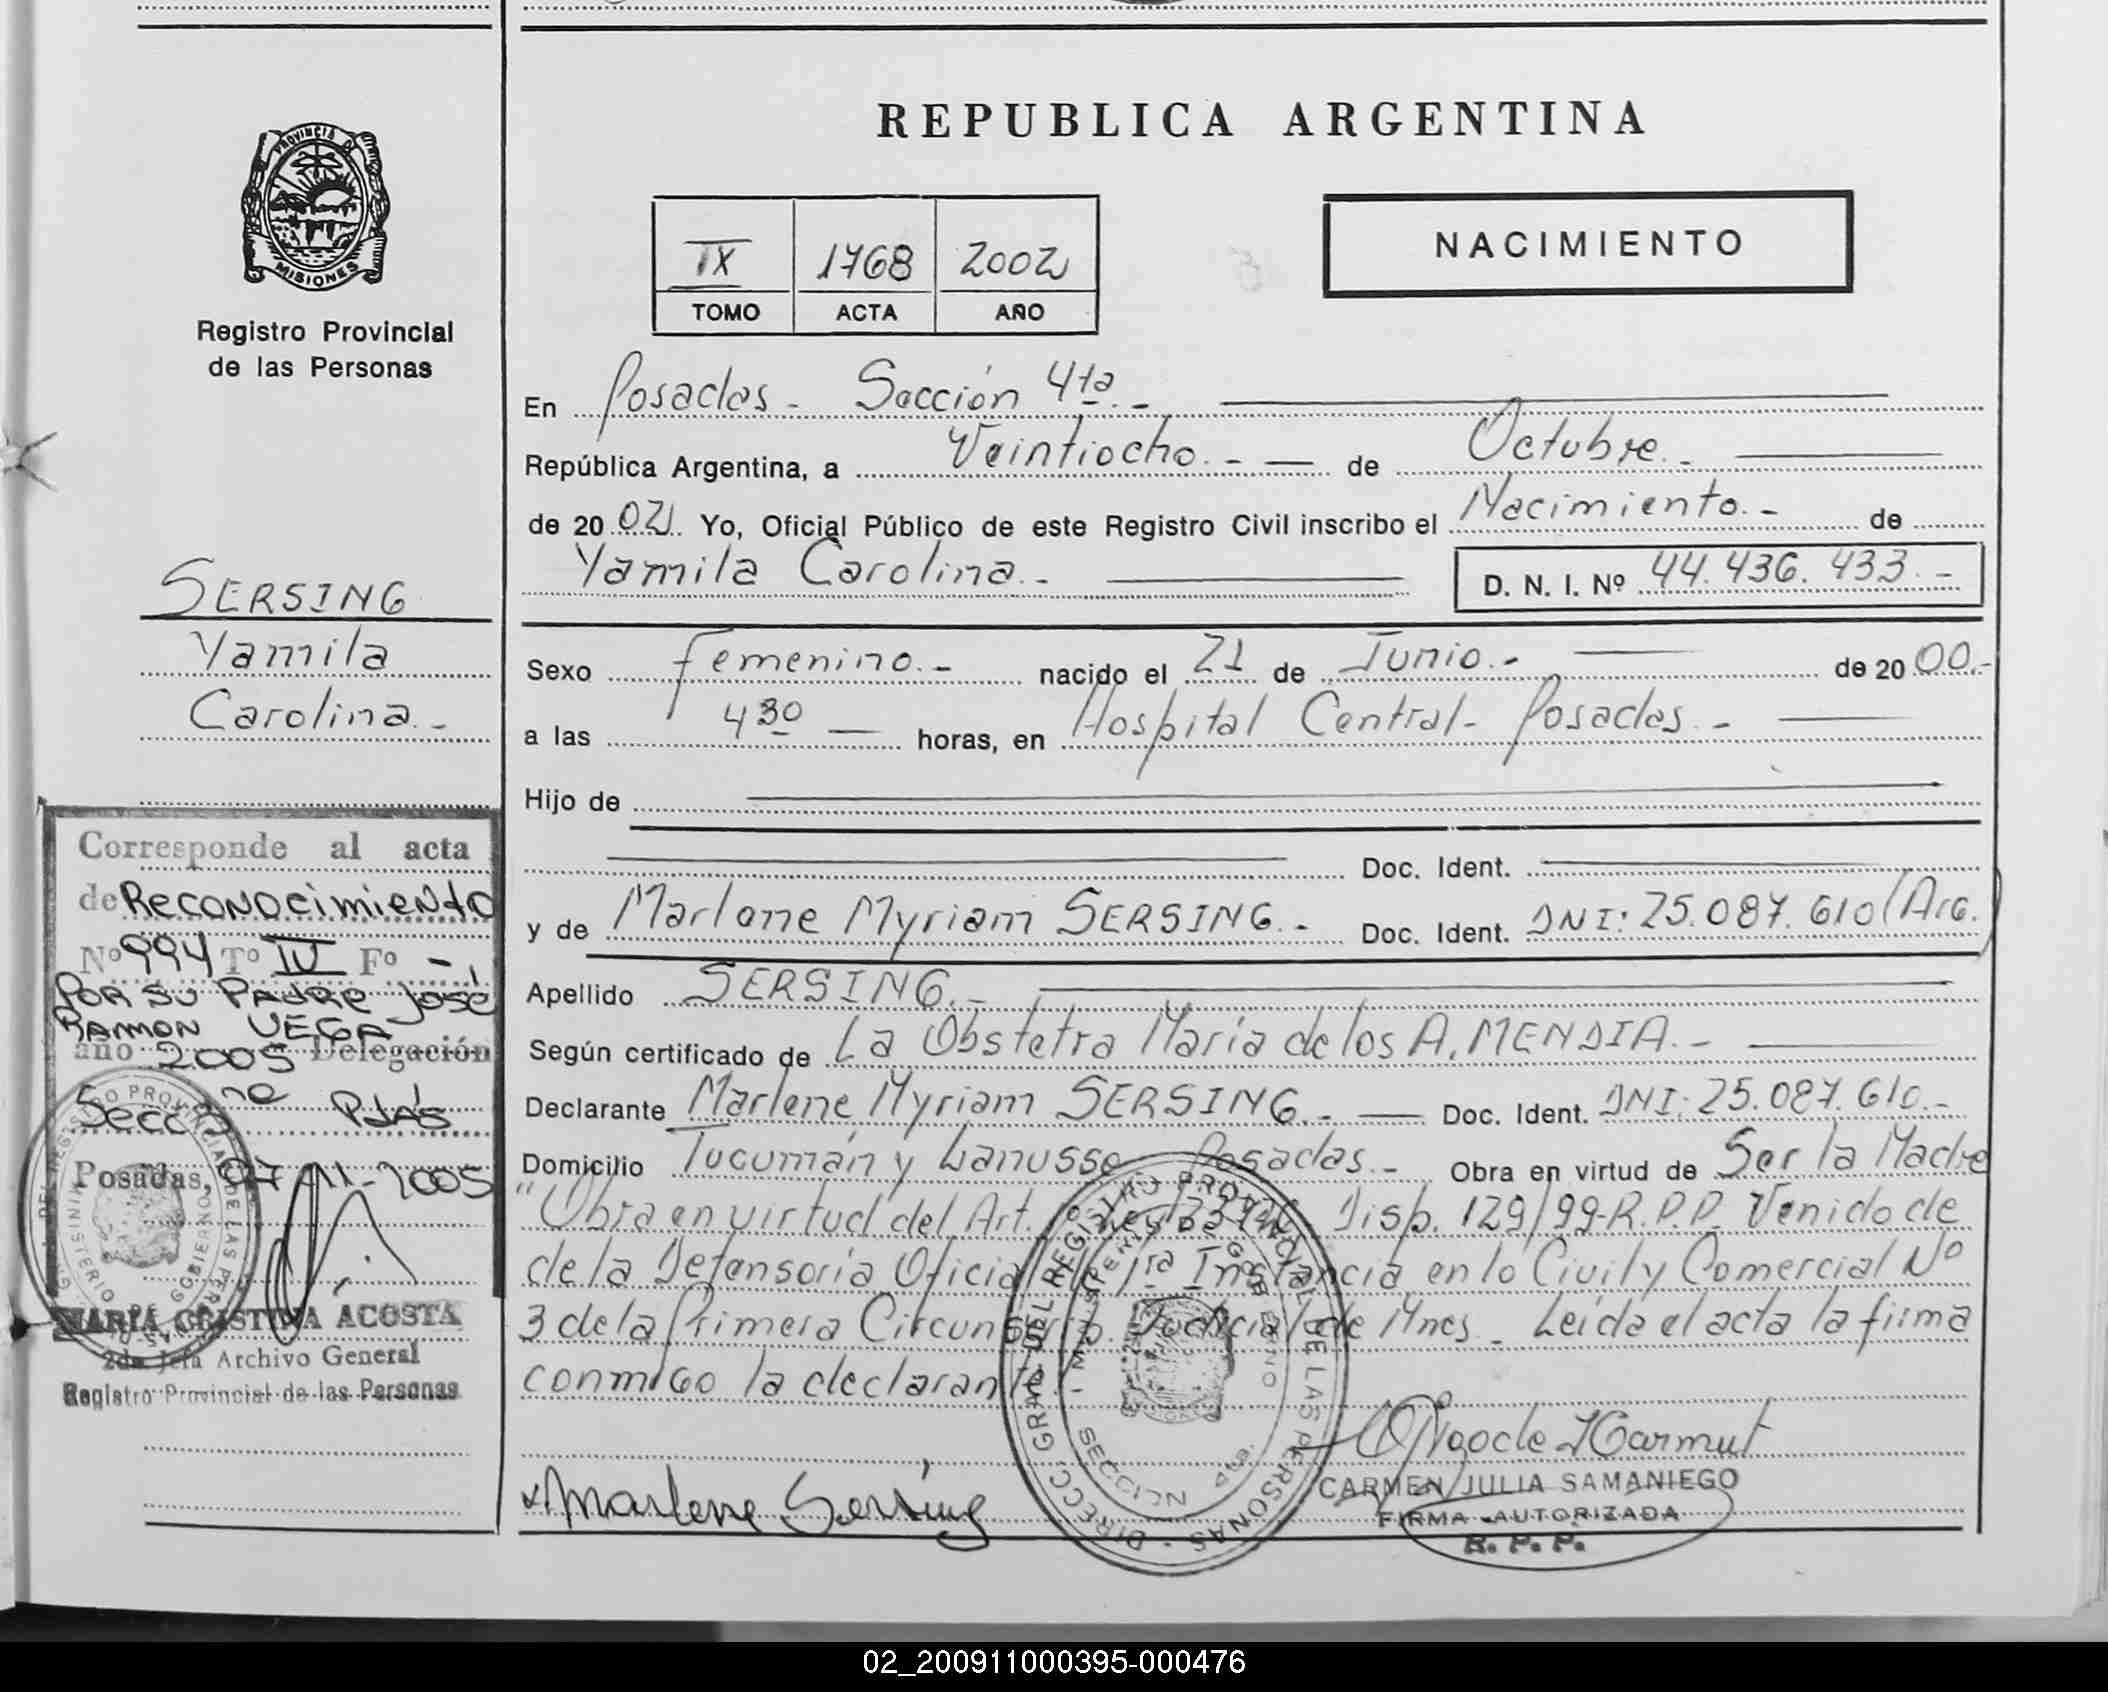 REPUBLICA ARGENTINA
PROVINCIA DE MISIONES
Registro Provincial
de las Personas
IX 1768 2002
TOMO ACTA AÑO
NACIMIENTO
En Posadas - Sección 4ta. -
República Argentina, a Veintiocho. - de Octubre. -
de 20 02. Yo, Oficial Público de este Registro Civil inscribo el Nacimiento. - de
Yamila Carolina. -
D. N. I. Nº 44.436.433. -
SERSING
Yamila
Carolina. -
Sexo Femenino. - nacido el 21 de Junio. - de 20 00. -
a las 4 30 horas, en Hospital Central - Posadas. -
Hijo de
Doc. Ident.
y de Marlene Myriam SERSING. - Doc. Ident. DNI: 25.087.610 (Arg.)
Apellido SERSING. -
Según certificado de La Obstetra María de los A. MENDIA. -
Declarante Marlene Myriam SERSING. - Doc. Ident. DNI: 25.087.610. -
Domicilio Tucumán y Lanusse Posadas. - Obra en virtud de Ser la Madre
"Obra en virtud del Art. Ley Disp. 129/99-R.P.P. Venido de
de la Defensoría Oficial de 1ra Instancia en lo Civil y Comercial Nº
3 de la Primera Circunscrip. Judicial de Mnes. Leída el acta la firma
conmigo la declarante. -
Marlene Sersing
CARMEN JULIA SAMANIEGO
FIRMA AUTORIZADA
R. P. P.
DIRECC. GRAL. DEL REGISTRO PROVINCIAL DE LAS PERSONAS
MINISTERIO DE GOBIERNO
SECCION 4ta.
Corresponde al acta
de Reconocimiento
Nº 994 Tº IV Fº -
Por su Padre José
Ramon VEGA
año 2005 Delegación
Secc Pdas
Posadas, 07-11-2005
MARIA CRISTINA ACOSTA
2da Jefa Archivo General
Registro Provincial de las Personas
02_200911000395-000476